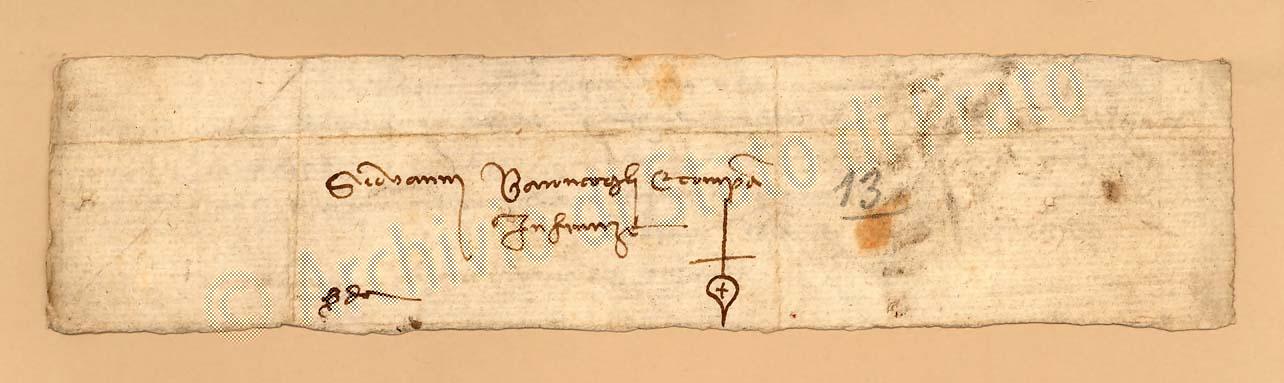 Giovanni Baroncegli e comp.a
In Firenze
13
© Archivio di Stato di Prato